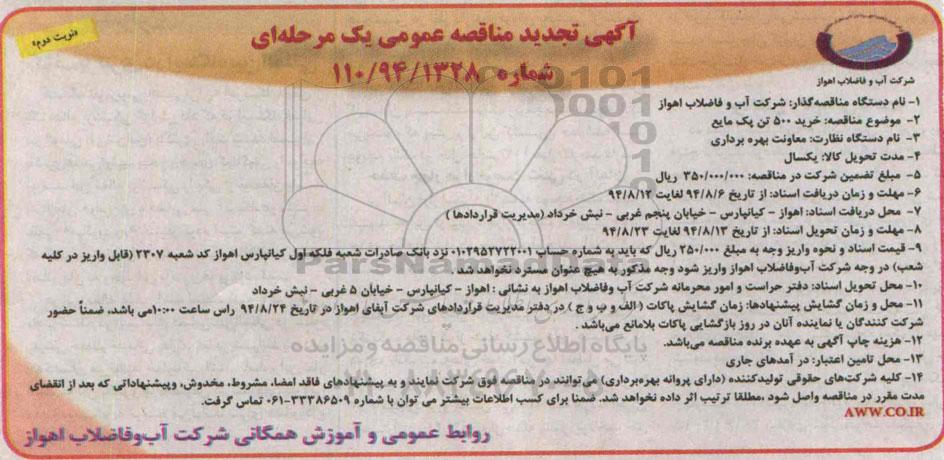 «نوبت دوم»
آگهی تجدید مناقصه عمومی یک مرحله‌ای
شماره ۱۱۰/۹۴/۱۳۲۸
شرکت آب و فاضلاب اهواز
۱- نام دستگاه مناقصه‌گذار: شرکت آب و فاضلاب اهواز
۲- موضوع مناقصه: خرید ۵۰۰ تن پک مایع
۳- نام دستگاه نظارت: معاونت بهره برداری
۴- مدت تحویل کالا: یکسال
۵- مبلغ تضمین شرکت در مناقصه: ۳۵۰/۰۰۰/۰۰۰ ریال
۶- مهلت و زمان دریافت اسناد: از تاریخ ۹۴/۸/۶ لغایت ۹۴/۸/۱۲
۷- محل دریافت اسناد: اهواز - کیانپارس - خیابان پنجم غربی - نبش خرداد (مدیریت قراردادها )
۸- مهلت و زمان تحویل اسناد: از تاریخ ۹۴/۸/۱۳ لغایت ۹۴/۸/۲۳
۹- قیمت اسناد و نحوه واریز وجه به مبلغ ۲۵۰/۰۰۰ ریال که باید به شماره حساب ۰۱۰۲۹۵۲۷۲۲۰۰۱ نزد بانک صادرات شعبه فلکه اول کیانپارس اهواز کد شعبه ۲۳۰۷ (قابل واریز در کلیه
شعب) در وجه شرکت آب‌وفاضلاب اهواز واریز شود وجه مذکور به هیچ عنوان مسترد نخواهد شد
۱۰- محل تحویل اسناد: دفتر حراست و امور محرمانه شرکت آب وفاضلاب اهواز به نشانی : اهواز - کیانپارس - خیابان ۵ غربی - نبش خرداد
۱۱- محل و زمان گشایش پیشنهادها: زمان گشایش پاکات ( الف و ب و ج ) در دفتر مدیریت قراردادهای شرکت آبفای اهواز در تاریخ ۹۴/۸/۲۴ راس ساعت ۱۰:۰۰می باشد، ضمناً حضور
شرکت کنندگان یا نماینده آنان در روز بازگشایی پاکات بلامانع می‌باشد .
۱۲- هزینه چاپ آگهی به عهده برنده مناقصه می‌باشد.
۱۳- محل تامین اعتبار: در آمدهای جاری
۱۴- کلیه شرکت‌های حقوقی تولیدکننده (دارای پروانه بهره‌برداری) می‌توانند در مناقصه فوق شرکت نمایند و به پیشنهادهای فاقد امضا، مشروط، مخدوش، وپیشنهاداتی که بعد از انقضای
مدت مقرر در مناقصه واصل شود ،مطلقا ترتیب اثر داده نخواهد شد. ضمنا برای کسب اطلاعات بیشتر می توان با شماره ۳۳۳۸۶۵۰۹-۰۶۱ تماس گرفت.
AWW.CO.IR
روابط عمومی و آموزش همگانی شرکت آب‌وفاضلاب اهواز
ParsNamadData
پایگاه اطلاع رسانی مناقصه و مزایده